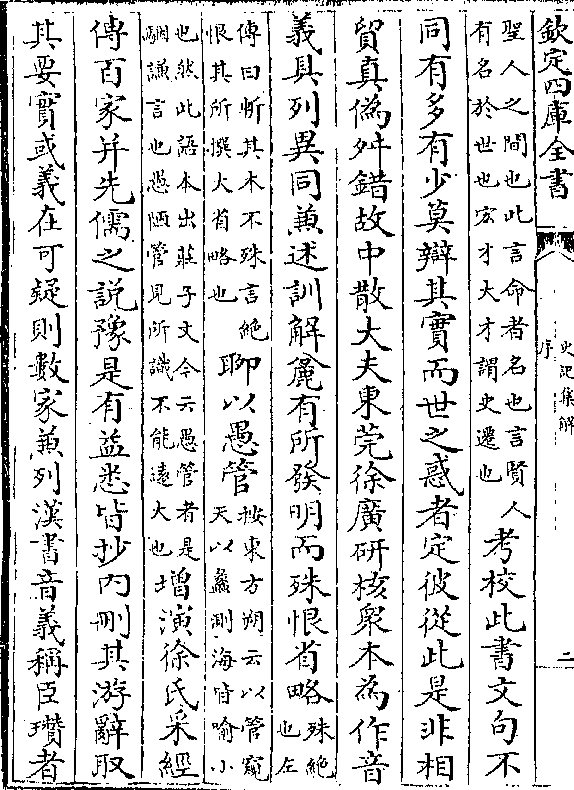 欽定四庫全書
史記集解
序
二
聖人之間也此言命者名也言賢人
有名於世也宏才大才謂史遷也
考校此書文句不
同有多有少莫辯其實而世之惑者定彼從此是非相
貿真偽舛錯故中散大夫東莞徐廣研核衆本為作音
義具列異同兼述訓解麄有所發明而殊恨省略
殊絶
也左
傳曰斬其木不殊言絶
恨其所撰大省略也
聊以愚管
按東方朔云以管窺
天以蠡測海皆喻小
也然此語本出莊子文今云愚管者是
嗣謙言也愚陋管見所識不能遠大也
增演徐氏采經
傳百家并先儒之說豫是有益悉皆抄内刪其游辭取
其要實或義在可疑則數家兼列漢書音義稱臣瓉者